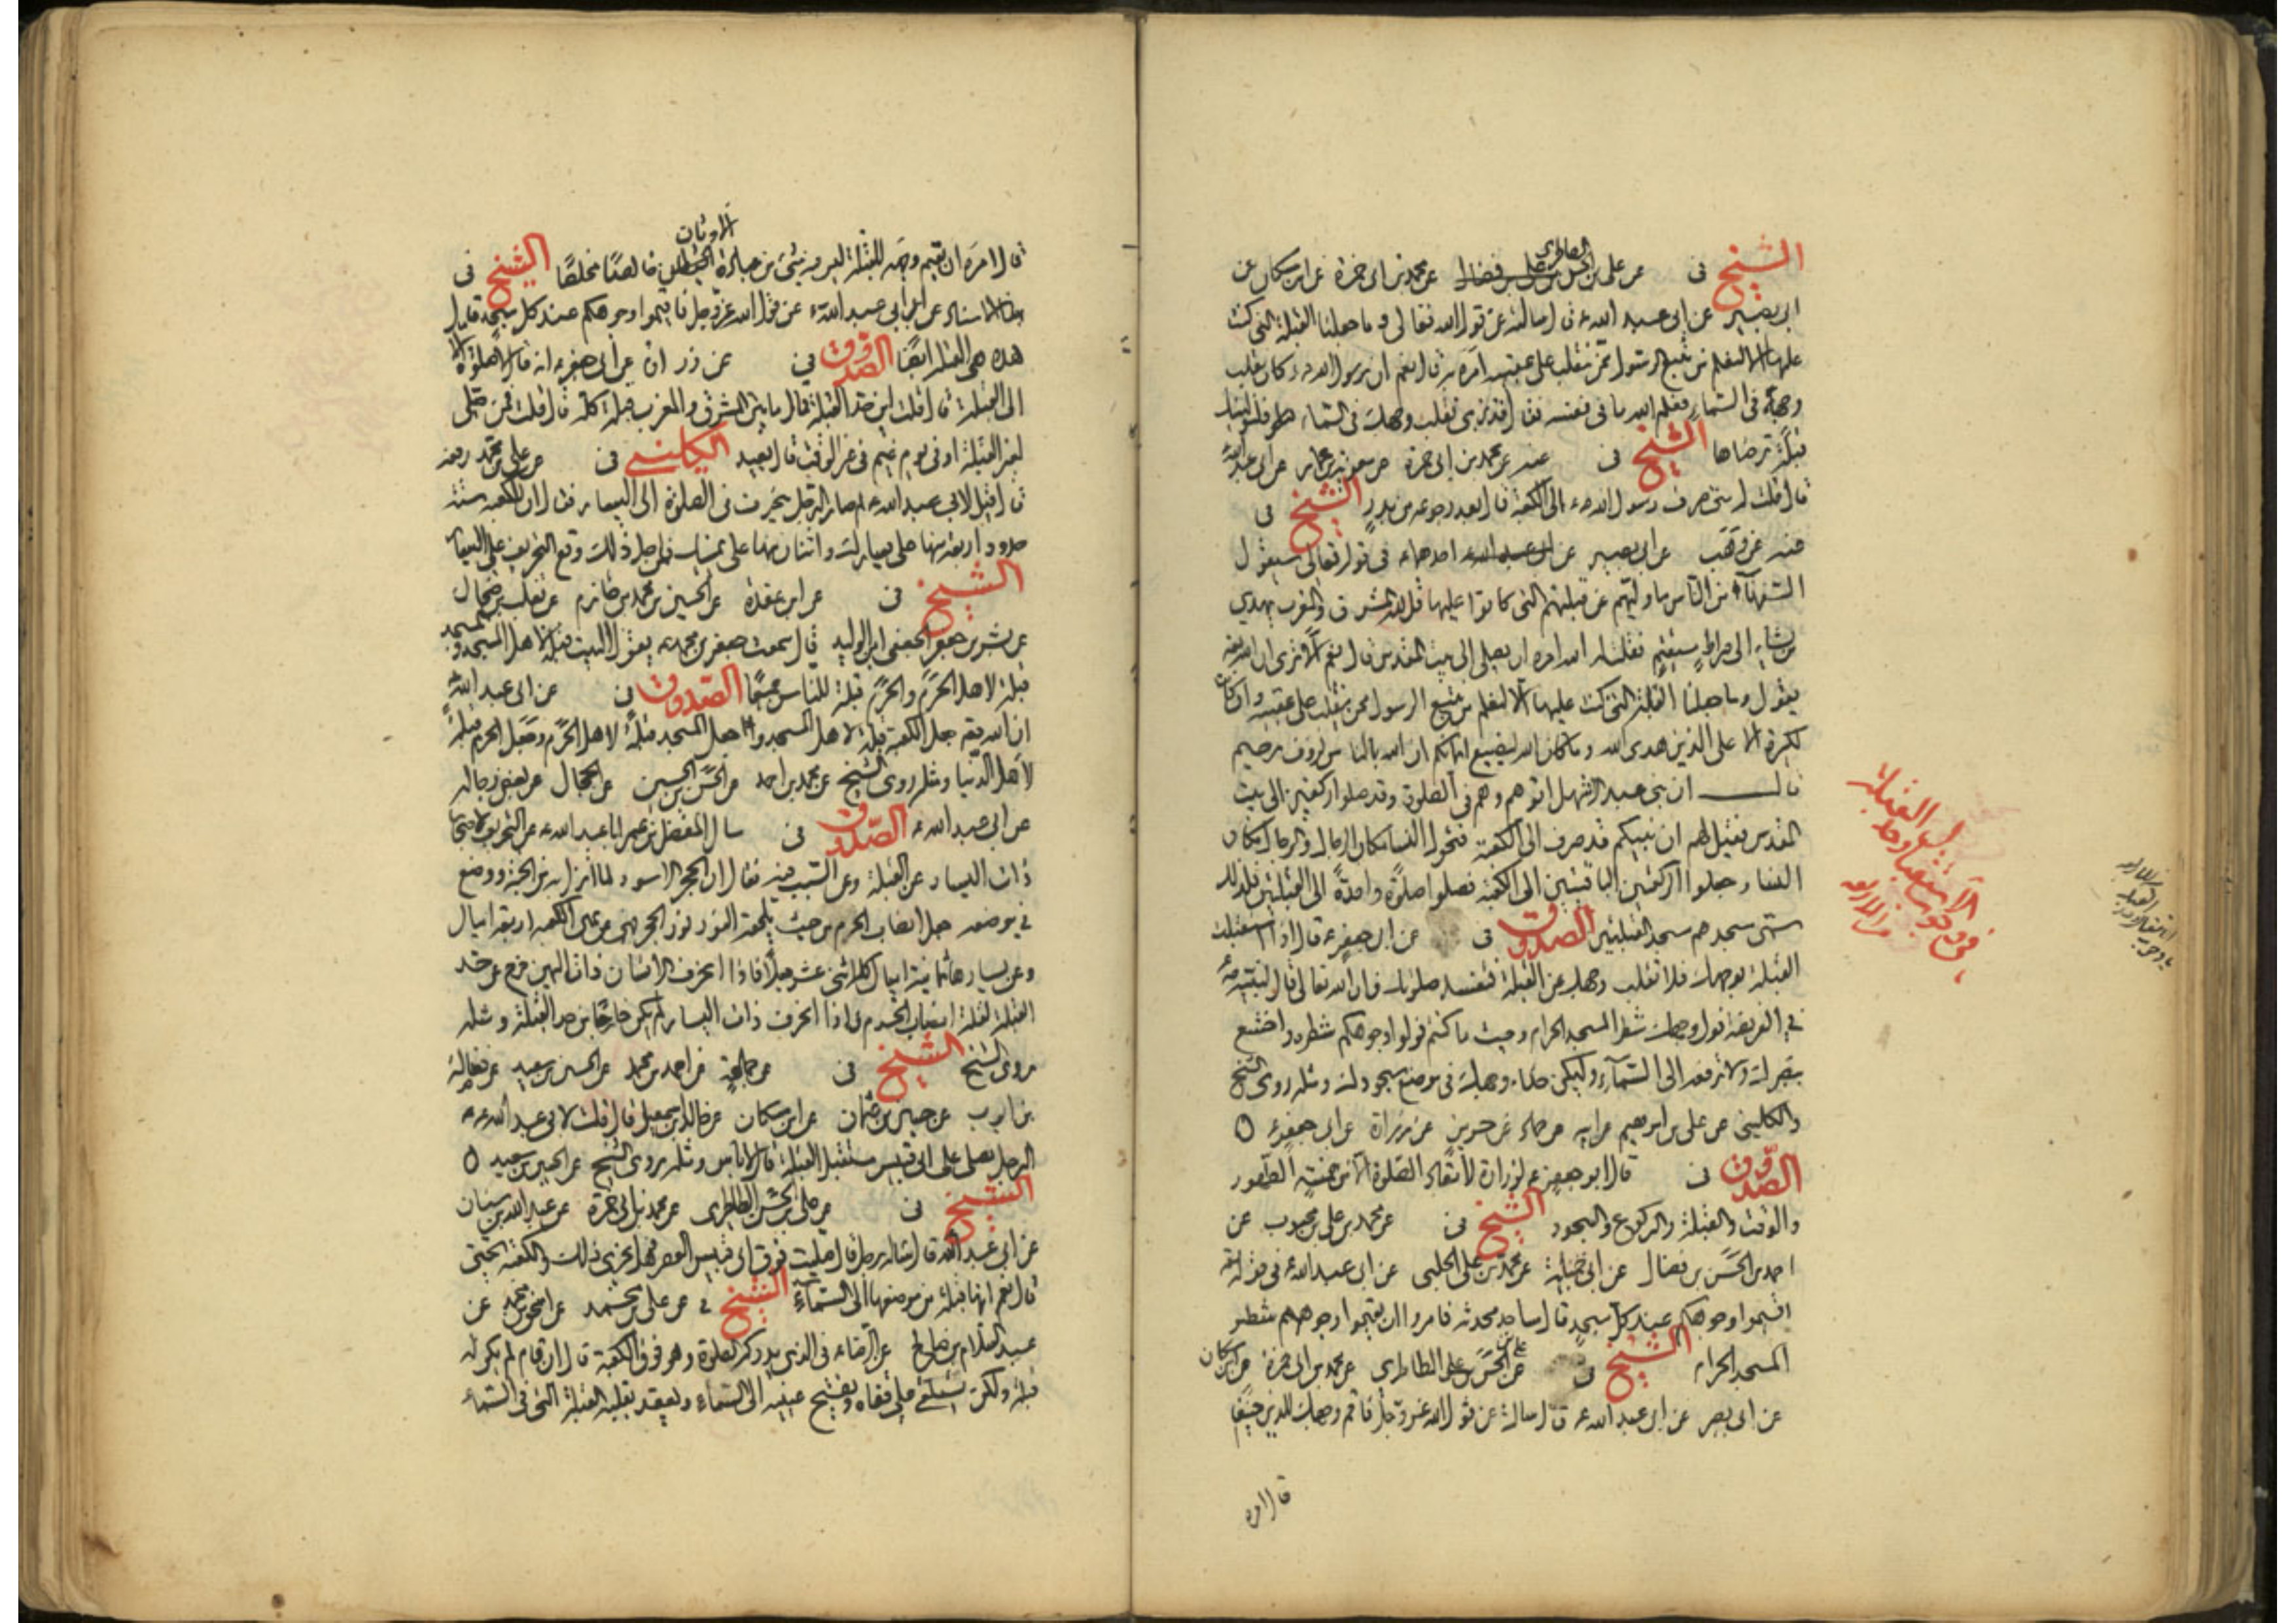 الشيخ فى عن على بن الحسن الطاطرى عن محمد بن ابى حمزة عن ابن مسكان عن
ابى بصير عن ابى عبد الله ع قال سالته عن قول الله تعالى و ما جعلنا القبلة التى كنت
عليها الا لنعلم من يتبع الرسول ممن ينقلب على عقبيه امره به قال نعم ان رسول الله ص كان يقلب
وجهه فى السماء فعلم الله ما فى نفسه فقال قد نرى تقلب وجهك فى السماء فلنولينك
قبلة ترضاها الشيخ فى عنه عن محمد بن ابى حمزة عن معوية بن عمار عن ابى عبد الله
قال قلت له متى صرف رسول الله ص الى الكعبة قال بعد رجوعه من بدر الشيخ فى
عنه عن وهيب عن ابى بصير عن احدهما ع فى قوله تعالى سيقول
السفهآء من الناس ما وليهم عن قبلتهم التى كانوا عليها قل لله المشرق والمغرب يهدي
من يشاء الى صراط مستقيم فقلت له الله امره ان يصلى الى بيت المقدس قال نعم الا ترى ان الله تعالى
يقول وما جعلنا القبلة التى كنت عليها الا لنعلم من يتبع الرسول ممن ينقلب على عقبيه وان كانت
لكبيرة الا على الذين هدى الله وما كان الله ليضيع ايمانكم ان الله بالناس لرؤف رحيم
قال ان بنى عبد الاشهل اتوهم وهم فى الصلوة وقد صلوا ركعتين الى بيت
المقدس فقيل لهم ان نبيكم قد صرف الى الكعبة فتحول النساء مكان الرجال والرجال مكان
النساء وجعلوا الركعتين الباقيتين الى الكعبة فصلوا صلوة واحدة الى القبلتين فلذلك
سمى مسجدهم مسجد القبلتين الصدوق فى عن ابى جعفر ع قال اذا استقبلت
القبلة بوجهك فلا تقلب وجهك عن القبلة فتفسد صلوتك فان الله تعالى قال لنبيه ص
فى الفريضة فول وجهك شطر المسجد الحرام وحيث ما كنتم فولوا وجوهكم شطره واخشع
ببصرك ولا ترفعه الى السمآء وليكن حذاء وجهك فى موضع سجودك ومثله روى الشيخ
والكلينى عن على بن ابرهيم عن ابيه عن حماد عن حريز عن زرارة عن ابى جعفر ع
الصدوق فى قال ابو جعفر ع لزرارة لا تعاد الصلوة الا من خمسة الطهور
والوقت والقبلة والركوع والسجود الشيخ فى عن محمد بن على بن محبوب عن
احمد بن الحسن بن فضال عن ابى جميلة عن محمد بن على الحلبى عن ابى عبد الله ع فى قوله تعالى
اقيموا وجوهكم عند كل مسجد قال مساجد محدثة فامروا ان يقيموا وجوههم شطر
المسجد الحرام الشيخ فى عن على بن الحسن الطاطرى عن محمد بن ابى حمزة عن ابن مسكان
عن ابى بصير عن ابى عبد الله ع قال سالته عن قول الله عز وجل فاقم وجهك للدين حنيفا
قال امره
قال امره ان يقيم وجهه للقبلة ليس فيه شئ من عبادة الاوثان خالصا مخلصا الشيخ فى
بهذا الاسناد عن ابى عبد الله ع عن قول الله عز وجل فاقيموا وجوهكم عند كل مسجد قال
هذه هى القبلة ايضا الصدوق فى عن زرارة عن ابى جعفر ع انه قال لا صلوة الا
الى القبلة قال قلت اين حد القبلة قال ما بين المشرق والمغرب قبلة كله قال قلت فمن صلى
لغير القبلة او فى يوم غيم فى غير الوقت قال يعيد الكلينى فى عن على بن محمد رفعه
قال قيل لابى عبد الله ع لم صار الرجل ينحرف فى الصلوة الى اليسار فقال لان للكعبة ستة
حدود اربعة منها على يسارك واثنان منها على يمينك فمن اجل ذلك وقع التحريف على اليسار
الشيخ فى عن ابن عقدة عن الحسين بن محمد بن حازم عن تغلب بن ضحاك
عن بشر بن جعفر الجعفى ابى الوليد قال سمعت جعفر بن محمد ع يقول البيت قبلة لاهل المسجد والمسجد
قبلة لاهل الحرم والحرم قبلة للناس جميعا الصدوق فى عن ابى عبد الله ع
ان الله تعالى جعل الكعبة قبلة لاهل المسجد وجعل المسجد قبلة لاهل الحرم وجعل الحرم قبلة
لاهل الدنيا ومثله روى الشيخ عن محمد بن احمد عن الحسن بن الحسين عن الحجال عن بعض رجاله
عن ابى عبد الله ع الصدوق فى سال المفضل بن عمر ابا عبد الله ع عن التحريف لاصحابنا
ذات اليسار عن القبلة وعن السبب فيه فقال ان الحجر الاسود لما انزل به من الجنة ووضع
فى موضعه جعل انصاب الحرم من حيث يلحقه النور نور الحجر فهى عن يمين الكعبة اربعة اميال
وعن يسارها ثمانية اميال كله اثنى عشر ميلا فاذا انحرف الانسان ذات اليمين خرج عن حد
القبلة لقلة انصاب الحرم واذا انحرف ذات اليسار لم يكن خارجا من حد القبلة ومثله
روى الشيخ الشيخ فى عن جماعة عن احمد بن محمد عن الحسين بن سعيد عن فضالة
بن ايوب عن حسين بن عثمان عن ابن مسكان عن خالد بن اسمعيل قال قلت لابى عبد الله ع
الرجل يصلى على ابى قبيس مستقبل القبلة قال لا باس ومثله روى الشيخ عن الحسين بن سعيد
الشيخ فى عن على بن الحسن الطاطرى عن محمد بن ابى حمزة عن عبد الله بن سنان
عن ابى عبد الله ع قال ساله رجل قال صليت فوق ابى قبيس العصر فهل يجزى ذلك والكعبة تحتى
قال نعم انها قبلة من موضعها الى السمآء الشيخ فى عن على بن محمد عن اسحق بن محمد عن
عبد السلام بن صالح عن الرضا ع فى الذى يدركه الصلوة وهو فوق الكعبة قال ان قام لم يكن له
قبلة ولكن يستلقى على قفاه ويفتح عينيه الى السماء ويعقد بقلبه القبلة التى فى السماء